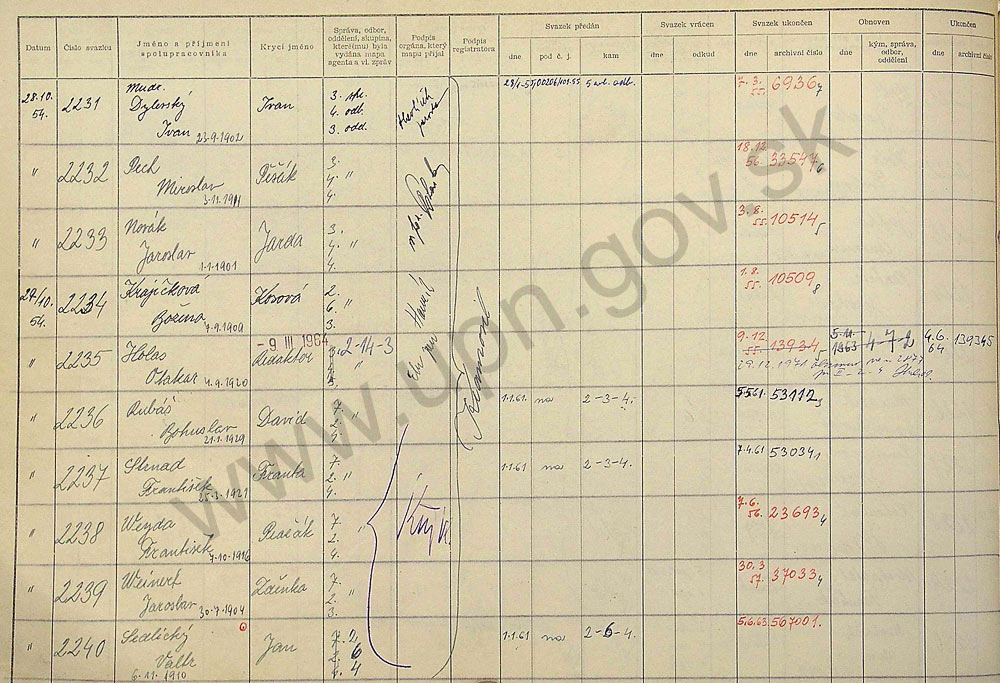 Datum
Číslo svazku
Jméno a příjmení spolupracovníka
Krycí jméno
Správa, odbor, oddělení, skupina, kterému byla vydána mapa agenta a vl. zpráv
Podpis orgána, který mapu přijal
Podpis registrátora
Svazek předán
dne
pod č. j.
kam
Svazek vrácen
dne
odkud
Svazek ukončen
dne
archivní číslo
Obnoven
dne
kým, správa, odbor, oddělení
Ukončen
dne
archivní číslo
28.10. 54. 2231 Mudr. Ivan 3.
Ivan 23-9-1902 4. odb. 7.3. 55. 6936 7
3. odd.
" 2232 Pech Pěšák 3. 18.12. 56. 33547 6
Miroslav 3-11-1911 4. "
4.
" 2233 Novák Jarda 3. 3.8. 55. 10514 5
Jaroslav 1-1-1901 4. "
4.
29/10. 54. 2234 Krajíčková Kosová 2. 1.8. 55. 10509 8
Božena 7-9-1900 6. "
3.
- 9 III 1964
" 2235 Holas Redaktor 2-14-3 9.12. 55. 13934 5 5.11. 1963 4-7-2 4.6. 64 139345
Otakar 4.9.1920
29.12.1971
" 2236 Rubáš David 7. 1.1.61 na 2-3-4. 5.5.61. 53112 3
Bohuslav 21.1.1929 2. "
4.
" 2237 Strnad Franta 7. 1.1.61 na 2-3-4. 7.4.61 53034 1
František 25-3-1921 2. "
4.
" 2238 Weyda 7. 7.6. 56. 23693 4
František 7-10-1916 2. "
4.
" 2239 Weinert Zdenka 7. 30.3 57. 37033 4
Jaroslav 30-9-1904 2. "
3.
" 2240 Sedlický Jan 2 1.1.61 na 2-6-4. 5.6.63 567001.
Valtr 6
6-11-1910 4
www.upn.gov.sk